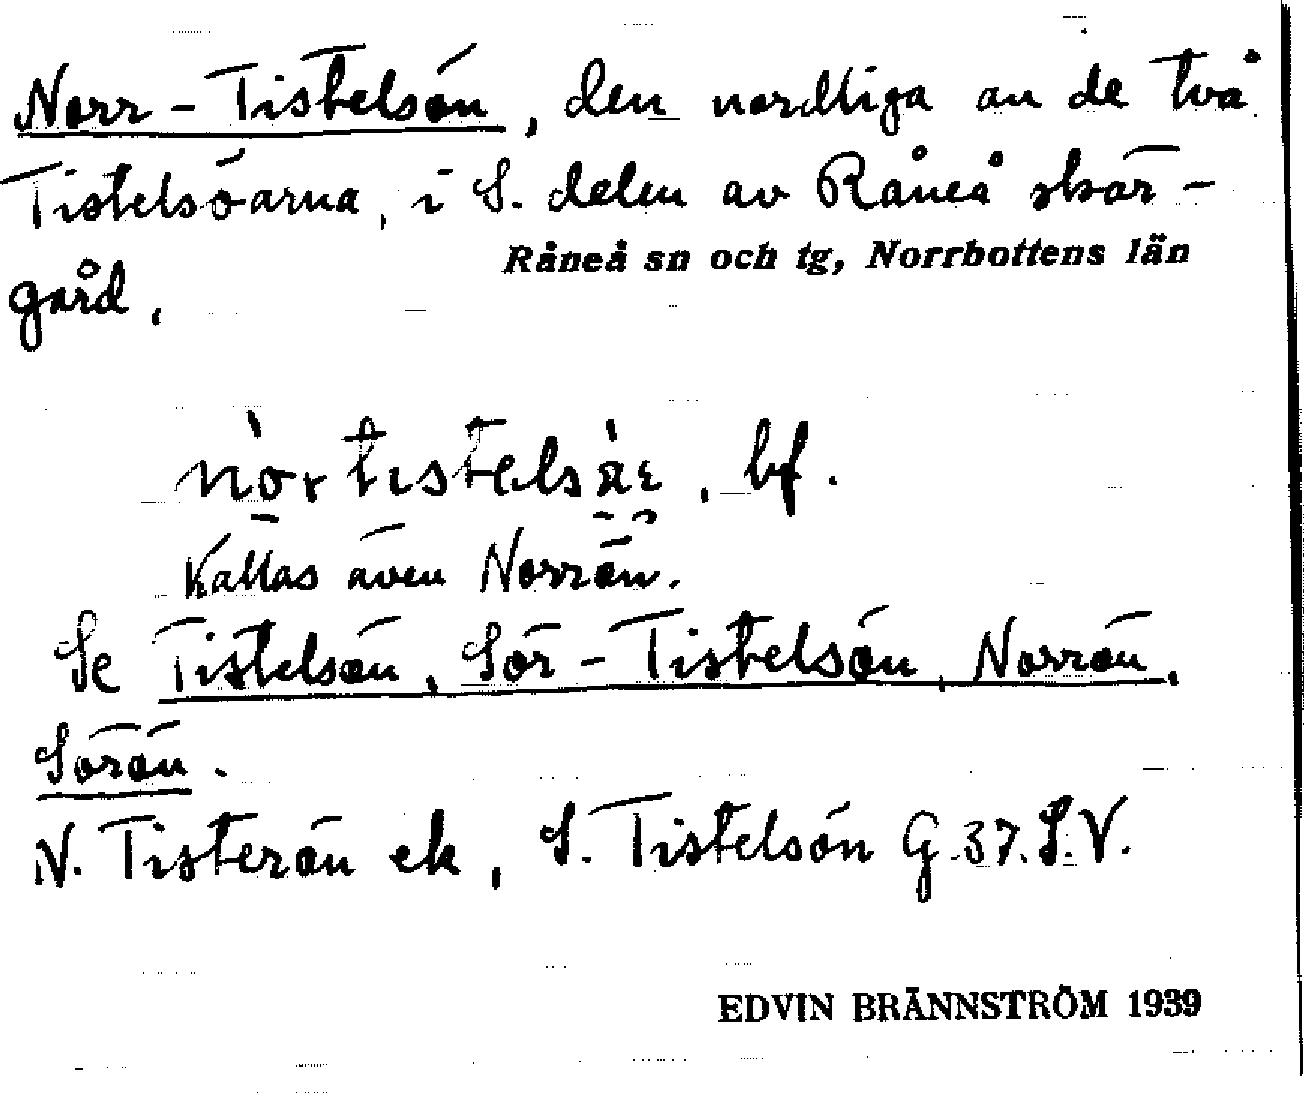 Norr-Tistelsön, den nordliga av de två
Tistelsöarna, i S. delen av Råneå skär-
Råneå sn och tg, Norrbottens län
gård.
bf.
Kallas även Norrön.
Se Tistelsön, Sör-Tistelsön, Norrön,
Sörön.
N. Tisterön ek, S. Tistelsön G.37.S.V.
EDVIN BRÄNNSTRÖM 1939